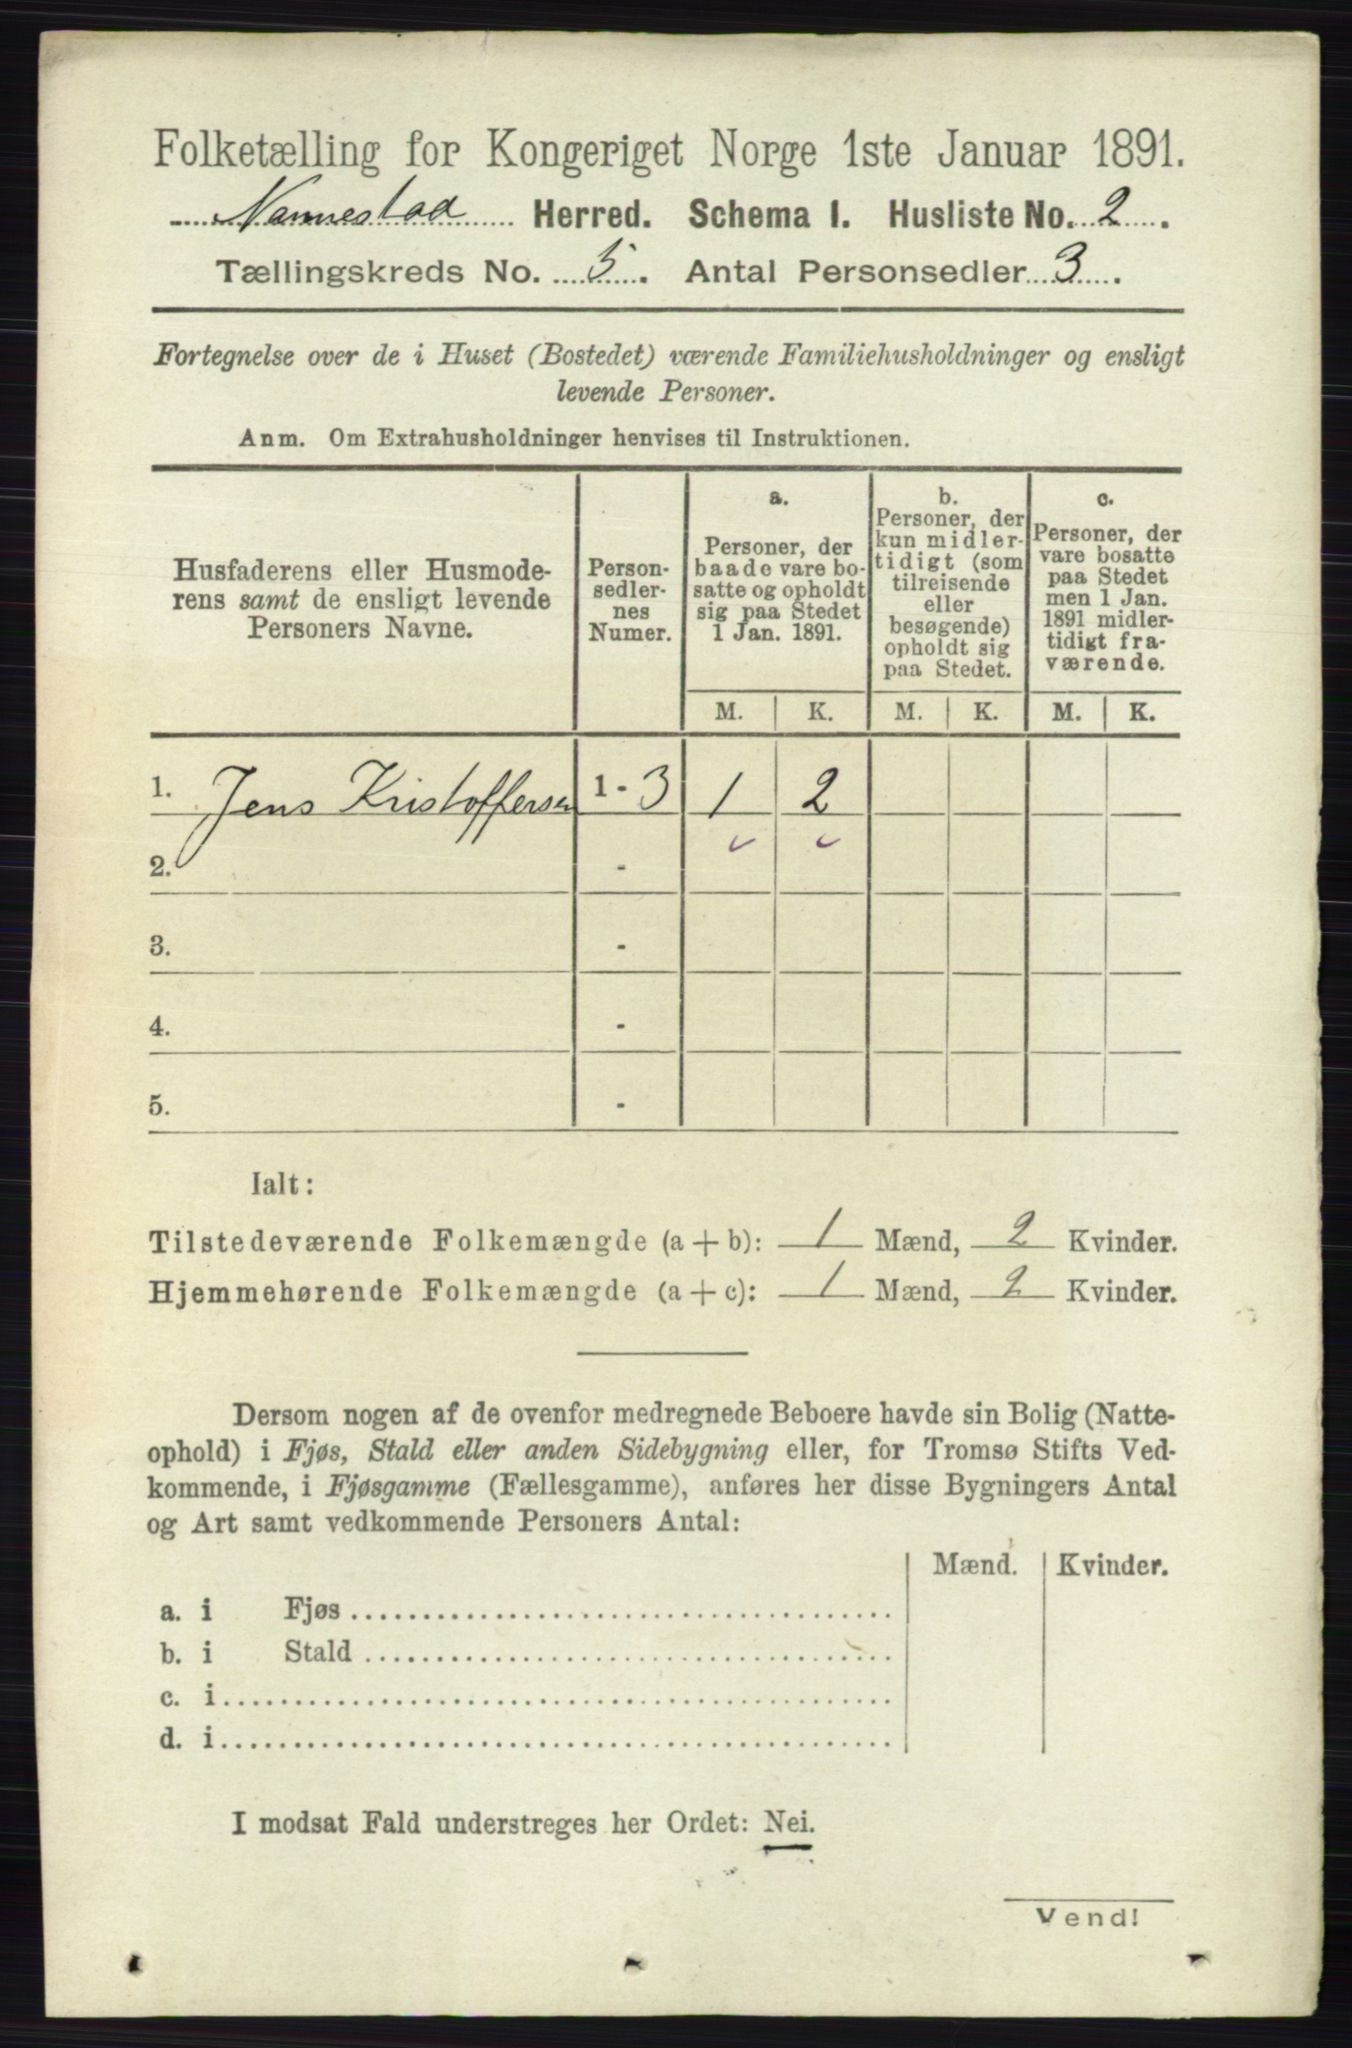 Folketælling for Kongeriget Norge 1ste Januar 1891.
Nannestad Herred. Schema 1. Husliste No. 2.
Tællingskreds No. 5. Antal Personsedler 3.
Fortegnelse over de i Huset (Bostedet) værende Familiehusholdninger og ensligt
levende Personer.
Anm. Om Extrahusholdninger henvises til Instruktionen.
Husfaderens eller Husmode-
rens samt de ensligt levende
Personers Navne.
Person-
sedler-
nes
Numer.
a.
Personer, der
baade vare bo-
satte og opholdt
sig paa Stedet
1 Jan. 1891.
b.
Personer, der
kun midler-
tidigt (som
tilreisende
eller
besøgende)
opholdt sig
paa Stedet.
c.
Personer, der
vare bosatte
paa Stedet
men 1 Jan.
1891 midler-
tidigt fra-
værende.
M. K. M. K. M. K.
1. Jens Kristoffersen 1 - 3 1 2
2. -
3. -
4. -
5. -
Ialt:
Tilstedeværende Folkemængde (a + b): 1 Mænd, 2 Kvinder.
Hjemmehørende Folkemængde (a + c): 1 Mænd, 2 Kvinder.
Dersom nogen af de ovenfor medregnede Beboere havde sin Bolig (Natte-
ophold) i Fjøs, Stald eller anden Sidebygning eller, for Tromsø Stifts Ved-
kommende, i Fjøsgamme (Fællesgamme), anføres her disse Bygningers Antal
og Art samt vedkommende Personers Antal:
Mænd. Kvinder.
a. i Fjøs
b. i Stald
c. i
d. i
I modsat Fald understreges her Ordet: Nei.
Vend!